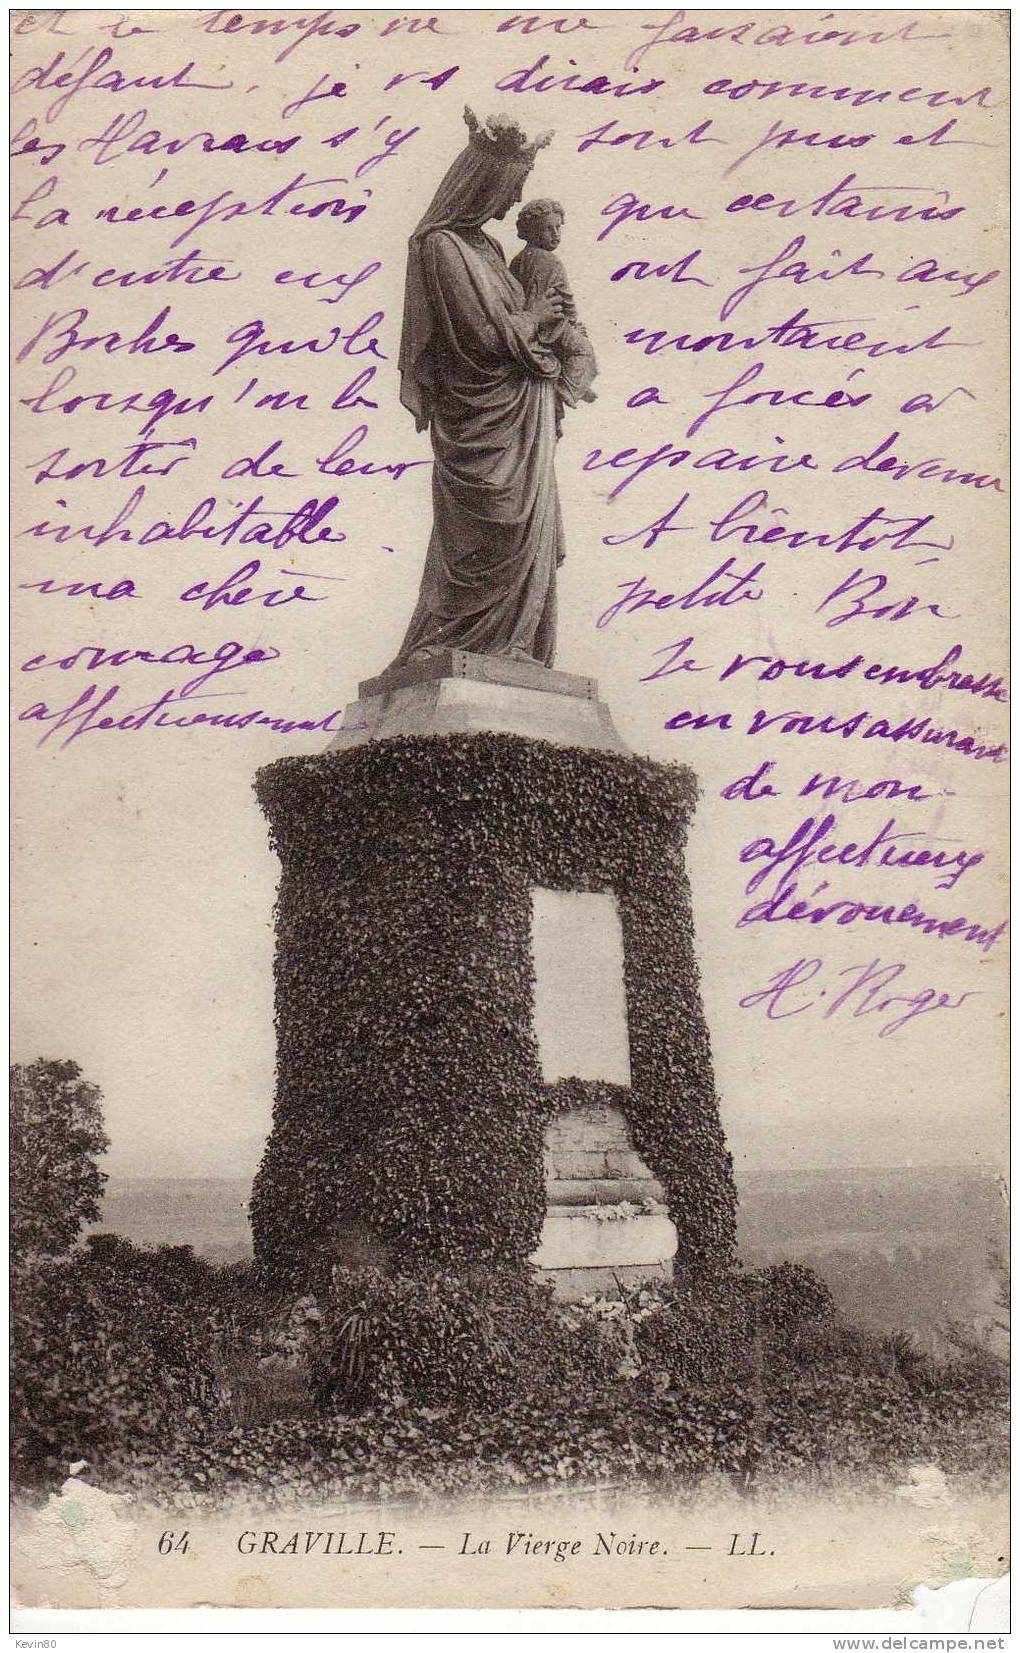 et le temps ne me faisaient
défaut, je vs dirais comment
les Havrais s'y sont pris et
la réception que certains
d'entre eux ont fait aux
Boches qui le montaient
lorsqu'on le a forcés à
sortir de leur repaire devenu
inhabitable. A bientôt,
ma chère petite. Bon
courage Je vous embrasse
affectueusement en vous assurant
de mon
affectueux
dévouement
H. Roger
64 GRAVILLE. — La Vierge Noire. — LL.
Kevin80
www.delcampe.net